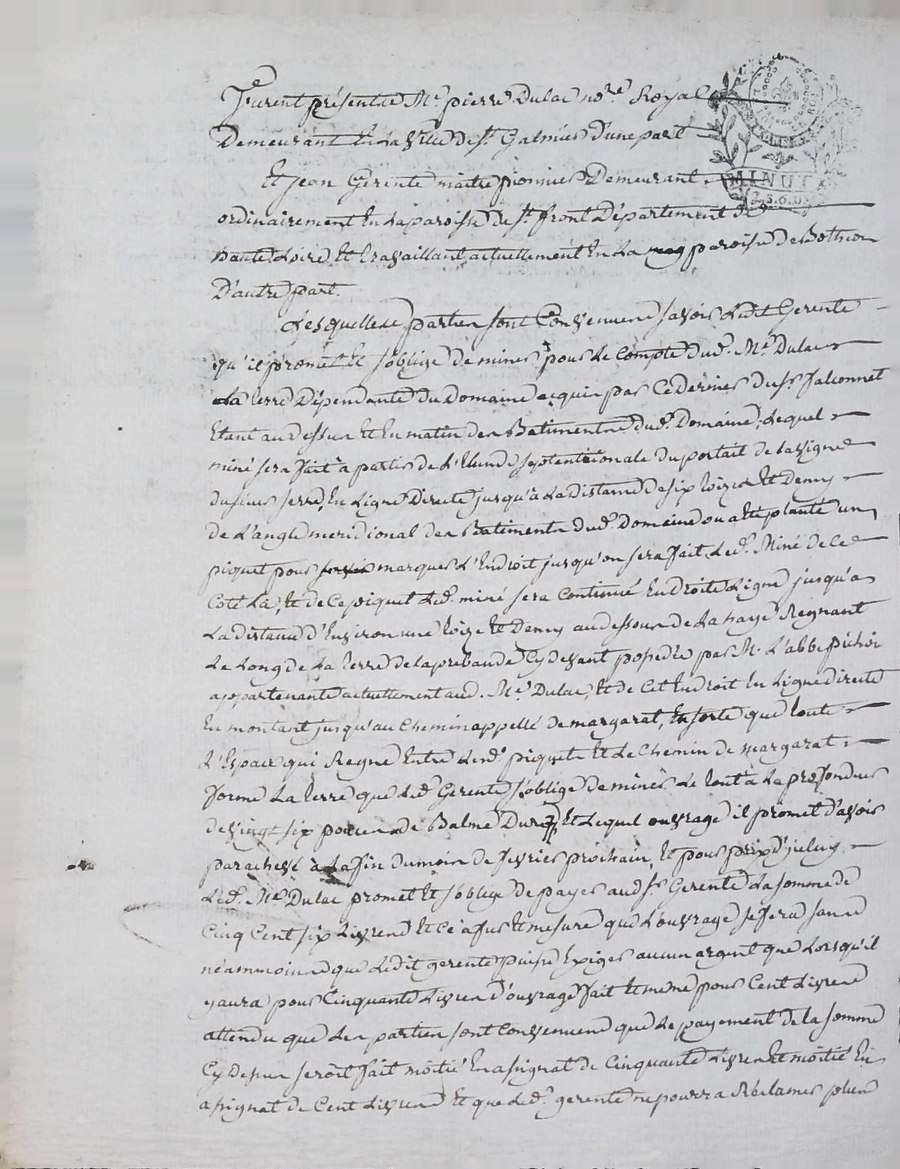 Furent présentes Me. pierre Dulac nore. Royal
Demeurant En La Ville de St. Galmier d'une part
Et Jean Gerente maitre pionnier Demeurant
ordinairement En La paroisse de St. front Département de
haute Loire Et travaillant actuellement En La paroisse de Bothéon
D'autre part.
Lesquelles parties sont Convenues savoir Ledit Gerente
qu'il promet Et s'oblige de miner pour Le Compte dud. Me. Dulac
La terre Dépendante du Domaine acquis par Ce Dernier du Sr. falconnet
Etant au dessus Et En matin des Batiments dud. Domaine, Lequel
miné sera fait à partir de L' septentrionale du portail de La vigne
du sieur serre, En Ligne Directe jusqu'à La distance de six toizes Et Demy
de L'angle meridional des Batiments dud. Domaine ou a été planté un
piquet pour marquer L'Endroit jusqu'ou sera fait Led. Miné de Ce
Coté La, Et de Ce piquet Led. miné sera Continué En droite Ligne jusqu'a
La distance d'Environ une toize Et Demy au dessous de La haye Regnant
Le Long de La terre de La prebande Cy devant possedée par M. L'abbé pichon
appartenante actuellement aud. Me. Dulac, Et de Cet Endroit En Ligne directe
En montant jusqu'au Chemin appellé de margarat, En sorte que toute
L'Espace qui Regne Entre Lesd. piquets Et Le Chemin de margarat
forme La terre que Led. Gerente s'oblige de miner Le tout à La profondeur
de vingt six pouces de Balme Dure, Et Lequel ouvrage il promet d'avoir
parachevé à La fin du mois de fevrier prochain, Et pour prix d'iceluy
Led. Me. Dulac promet Et s'oblige de payer aud. Sr. Gerente La somme de
Cinq Cent six Livres Et Ce à fur Et mesure que L'ouvrage se fera sans
néammoins que Ledit gerente puisse Exiger aucun argent que Lorsqu'il
y aura pour Cinquante Livres d'ouvrage fait Et meme pour Cent Livres
attendu que Les parties sont Convenues que Le payement de la somme
Cy dessus seroit fait moitié En assignat de Cinquante Livres Et moitié En
assignat de Cent Livres Et que Led. gerente ne pourra Réclamer
MINUTE